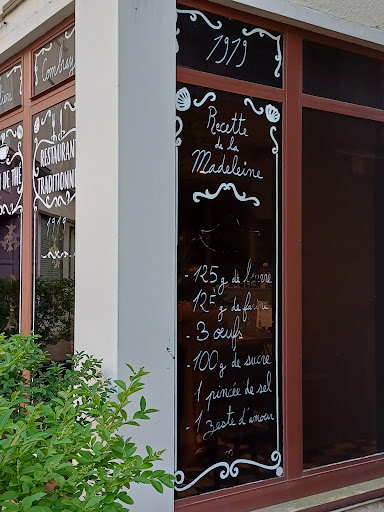 liers
Combray
N DE THÉ
RESTAURANT
TRADITIONNEL
1919
1919
Recette
de la
Madeleine
125g de beurre
125g de farine
- 3 œufs
- 100g de sucre
- 1 pincée de sel
- 1 zeste d'amour